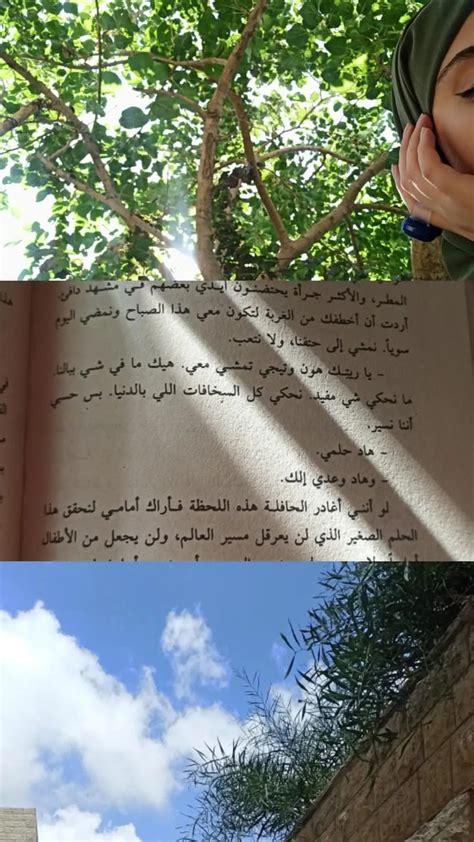 المطر، والأكثر جرأة يحتضنون أيدي بعضهم في مشهد دافئ.
أردت أن أخطفك من الغربة لتكون معي هذا الصباح ونمضي اليوم
سوياً. نمشي إلى حتفنا، ولا نتعب.
- يا ريتك هون وتيجي تمشي معي. هيك ما في شي ببالنا.
ما نحكي شي مفيد. نحكي كل السخافات اللي بالدنيا. بس حسي
أننا نسير.
- هاد حلمي.
- وهاد وعدي إلك.
لو أنني أغادر الحافلة هذه اللحظة فأراك أمامي لنحقق هذا
الحلم الصغير الذي لن يعرقل مسير العالم، ولن يجعل من الأطفال